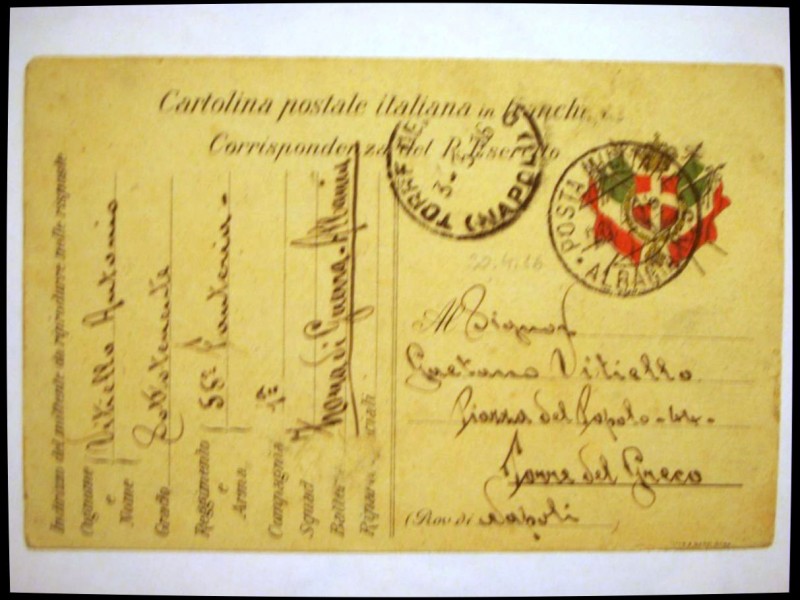 Cartolina postale italiana in franchigia
Corrispondenza del R. Esercito
TORRE DEL (NAPOLI)
POSTA MILITARE
ALBANIA
Indirizzo del mittente da riprodursi nelle risposte
Cognome e Nome Vitiello Antonio
Grado Sottotenente
Reggimento e Arma 55° Fanteria -
Compagnia 1ª
Squad
Batter
Riparti
Zona di Guerra - Albania
30.4.16
Al Signor
Gaetano Vitiello
Piazza del Popolo
Torre del Greco
(Prov di Napoli